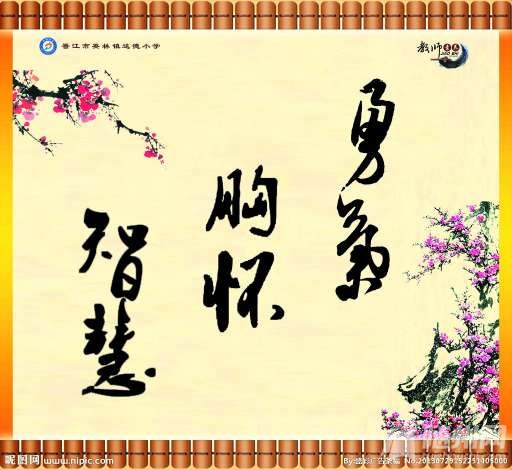 晋江市英林镇远德小学
教师
勇气
胸怀
智慧
昵图网
www.nipic.com